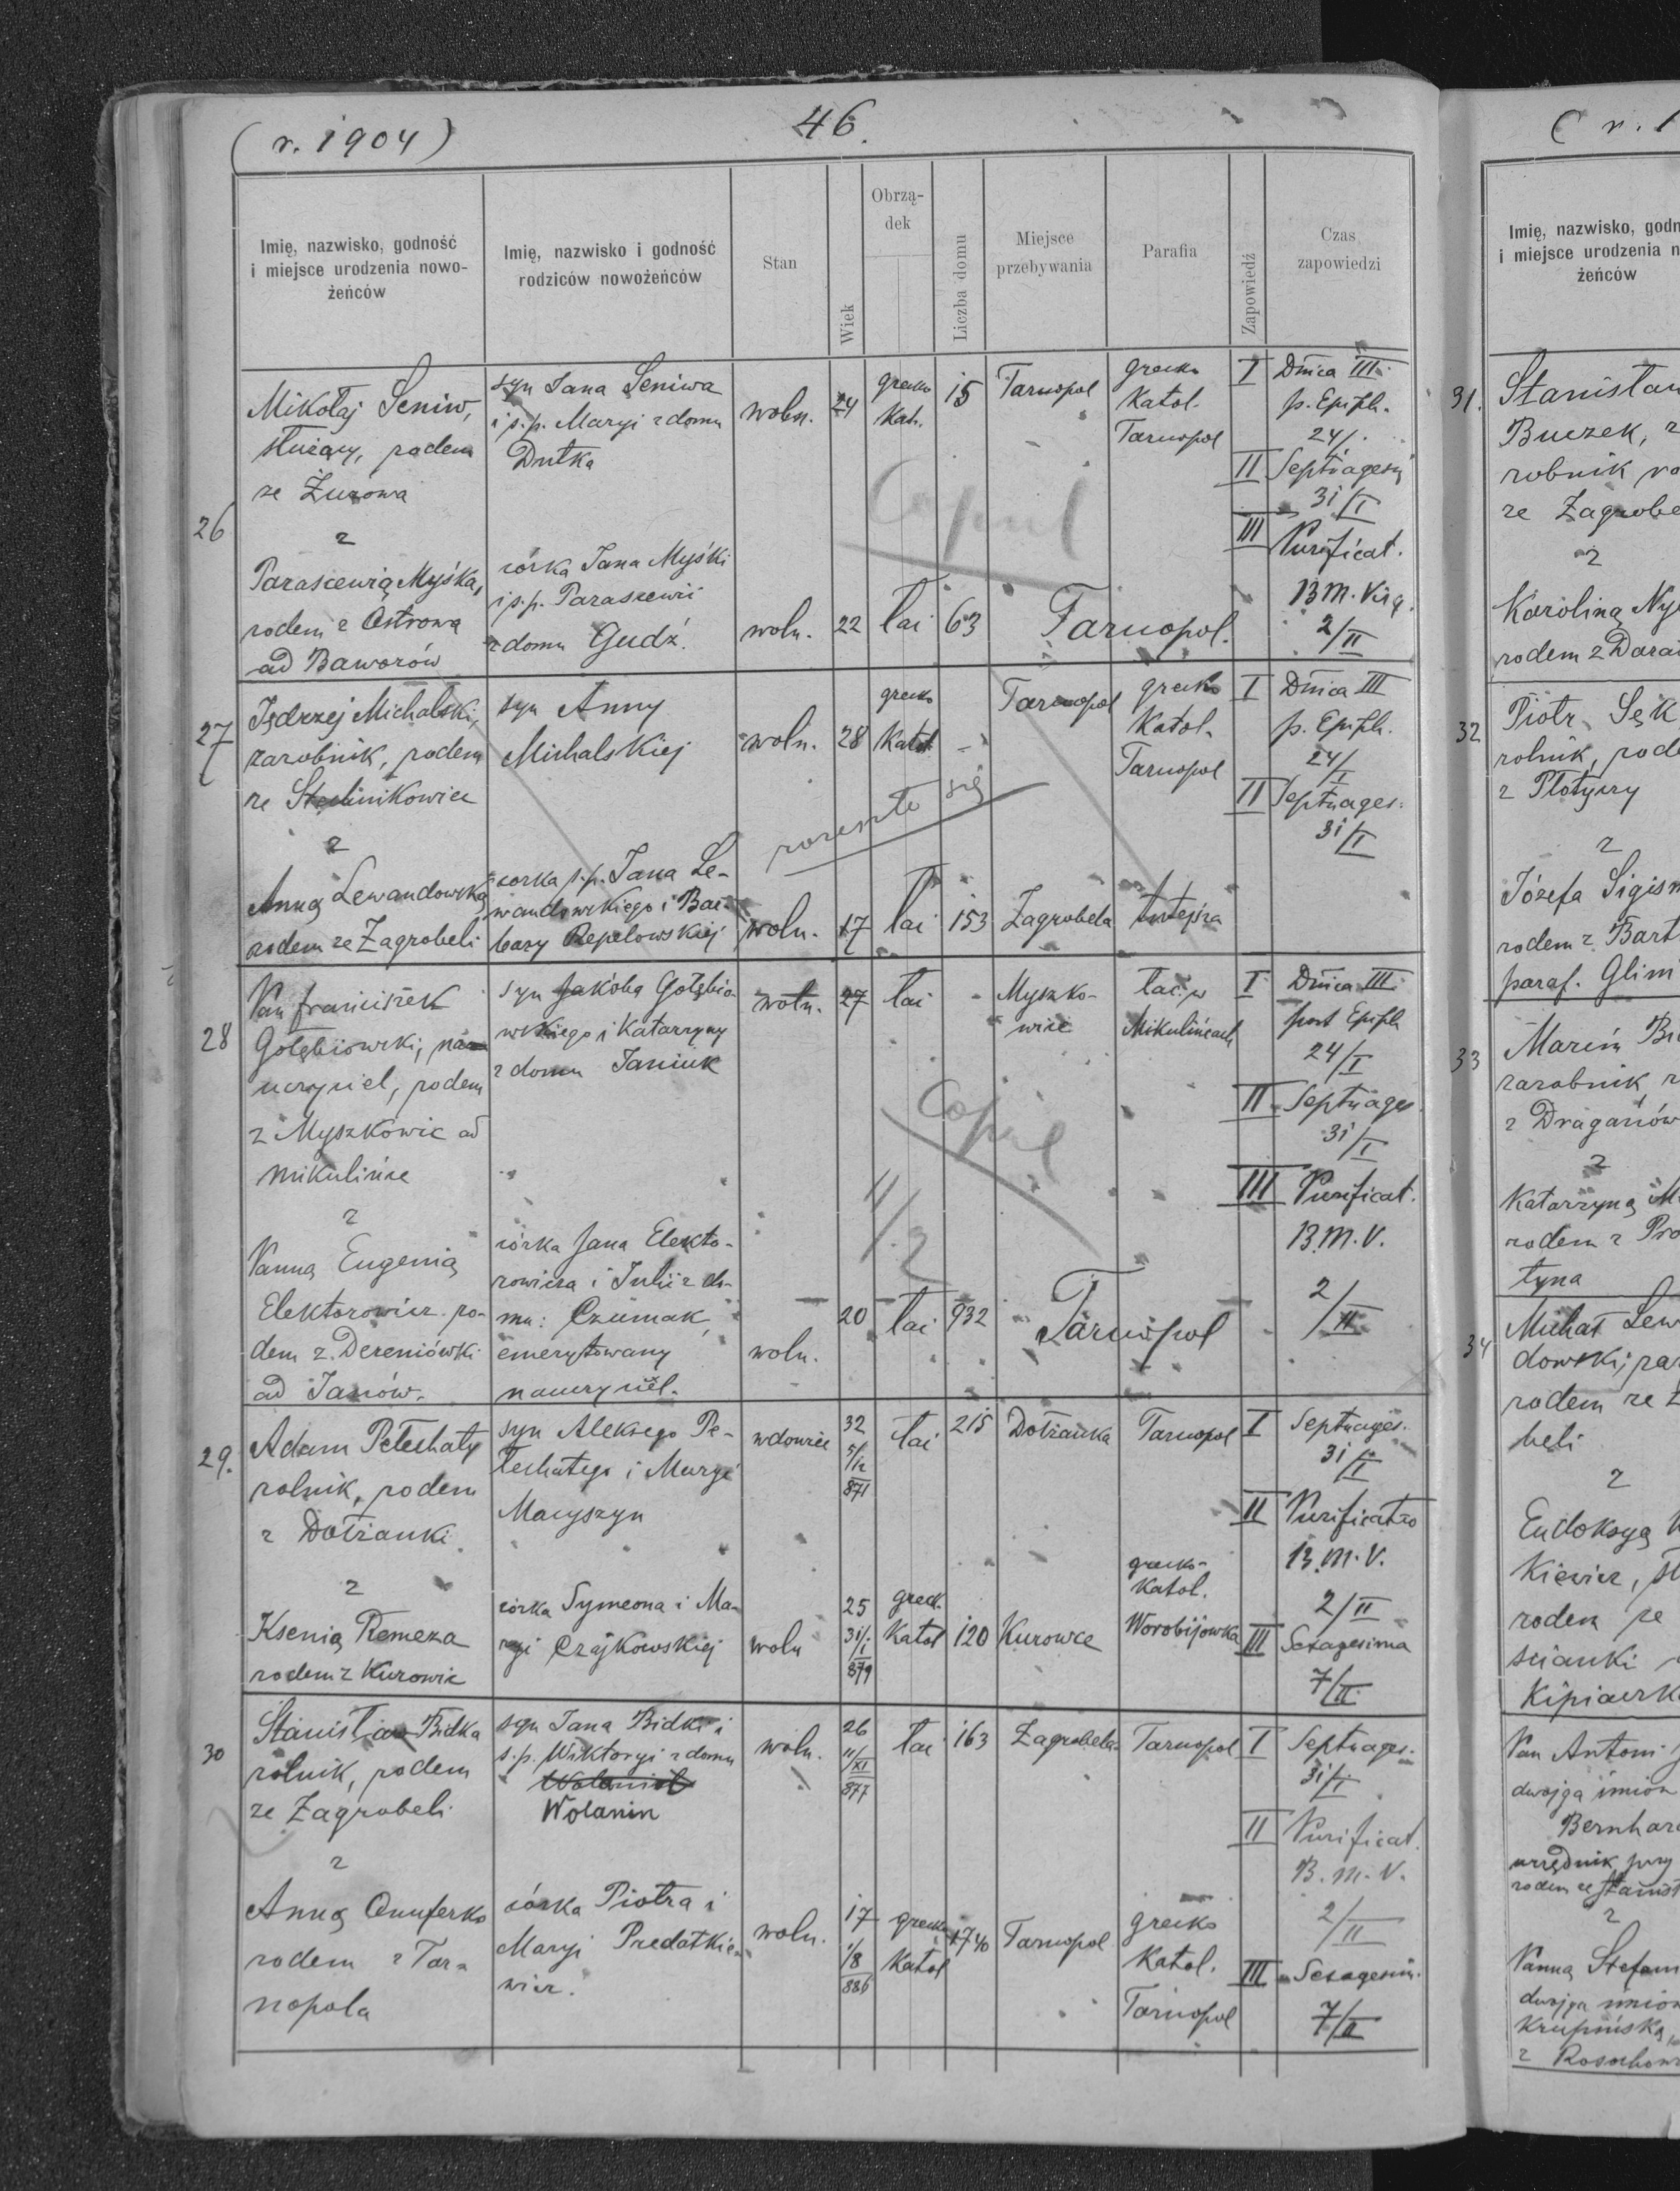 ( r. 1904 )
46.
Imię, nazwisko, godność
i miejsce urodzenia nowo-
żeńców
Imię, nazwisko i godność
rodziców nowożeńców
Stan
Wiek
Obrzą-
dek
Liczba domu
Miejsce
przebywania
Parafia
Zapowiedź
Czas
zapowiedzi
26
Mikołaj Seniw,
służący, rodem
ze Żurowa
z
Parascewią Myśka,
rodem z Ostrowa
ad Baworów
syn Jana Seniwa
i s.p. Maryi z domu
Dutka
córka Jana Myśki
i s.p. Paraszewii
z domu Gudź.
woln.
24
grecko
Kat.
15
Tarnopol
grecko
Katol.
Tarnopol
woln.
22
łać
63
Tarnopol.
Copul
I Dnica III
p. Epiph.
24/.
II Septuages
31/I
III Purificat.
B. M. Virg.
2/II
27
Jędrzej Michalski,
zarobnik, rodem
ze
z
Anną Lewandowską
rodem ze Zagrobeli
syn Anny
Michalskiej
corka s.p. Jana Le-
wandowskiego i Bar-
bary Repelowskiej
woln.
28
grecko
Katol.
-
Tarnopol
grecko
Katol.
Tarnopol
rozeszło się
woln.
17
łać
153
Zagrobela
tutejsza
I Dnica III
p. Epiph.
24/I
II Septuages.
31/I
28
Pan Franciszek
Gołębiowski, na-
uczyciel, rodem
z Myszkowic ad
Mikulińce
z
Panną Eugenią
Elektorowicz ro-
dem z Dereniówki
ad Janów.
syn Jakóba Gołębio-
wskiego i Katarzyny
z domu Janiuk
córka Jana Elekto-
rowicza i Julii z do-
mu: Czumak,
emerytowany
nauczyciel.
woln.
27
łać
-
Myszko-
wice
łać. w
Mikulińcach
Copul
4/2
woln.
20
łać
932
Tarnopol
I Dnica III
post Epiph
24/I
II Septuages
31/I
III Purificat.
B. M. V.
2/II
29.
Adam Petechaty
rolnik, rodem
z Dołżanki
z
Ksenią Remeza
rodem z Kurowic
syn Aleksego Pe-
techatego i Maryi
Macyszyn
córka Symeona i Ma-
ryi Czajkowskiej
wdowiec
32
871
łać
215
Dołżanka
Tarnopol
woln
25
31/I
879
greck.
Katol
120
Kurowce
grecko-
Katol.
Worobijowka
I Septuages.
31/I
II Purificatio
B. M. V.
2/II
III Sexagesima
7/II
30
Stanisław Bidka
rolnik, rodem
ze Zagrobeli
z
Anną Onuferko
rodem z Tar-
nopola
syn Jana Bidki i
s.p. Wiktoryi z domu
Wolanin
córka Piotra i
Maryi Predatkie-
wicz.
woln.
26
11/XI
877
łać
163
Zagrobela
Tarnopol
woln.
17
1/8
886
grecko
Katol
1740
Tarnopol
grecko
Katol.
Tarnopol
I Septuages.
31/I
II Purificat.
B. M. V.
2/II
III Sexagesim.
7/II
( r. 1
Imię, nazwisko, godn
i miejsce urodzenia n
żeńców
31.
Stanisław
Buczek, z
robnik ro
ze Zagrobe
z
Karoliną Ny
rodem z Dara
32
Piotr Sęk
rolnik, rode
z Płotyczy
z
Józefa Sigism
rodem z Bart
paraf. Glin
33
Marcin
zarobnik, r
z Draganów
z
Katarzyną M
rodem z Pro
tyna
34
Michał Lew
dowski, zar
rodem ze Z
beli
z
Eudoksyą
kiewicz, sł
rodem ze
ścianki
Pan Antoni
dwojga imion
Bernhard
urzędnik przy
rodem ze Stanisł
z
Panną Stefani
dwojga imion
Krupińska,
z Rosochow